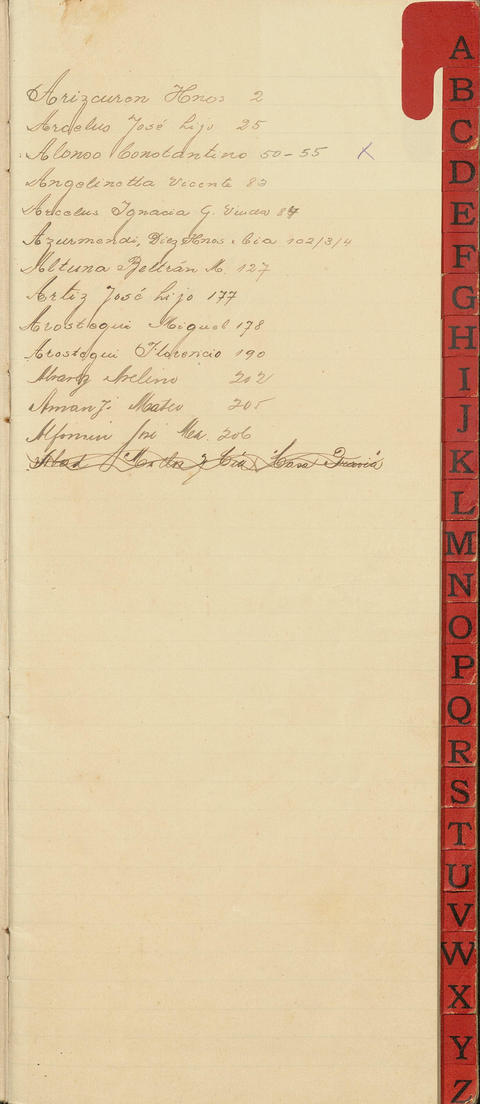 Arizcuren Hnos 2
Arcelus José hijo 25
Alonso Constantino 50-55 X
Angelinetta Vicente 83
Arcelus Ignacia G. Viuda 84
Azurmendi, Diez Hnos Cia 102/3/4
Altuna Beltrán M. 127
Artiz José hijo 177
Arostegui Miguel 178
Arostegui Florencio 190
Alvarez Avelino 202
Aman J. Mateo 205
Alfonsin José Ma. 206
y Cía Casa
A
B
C
D
E
F
G
H
I
J
K
L
M
N
O
P
Q
R
S
T
U
V
W
X
Y
Z